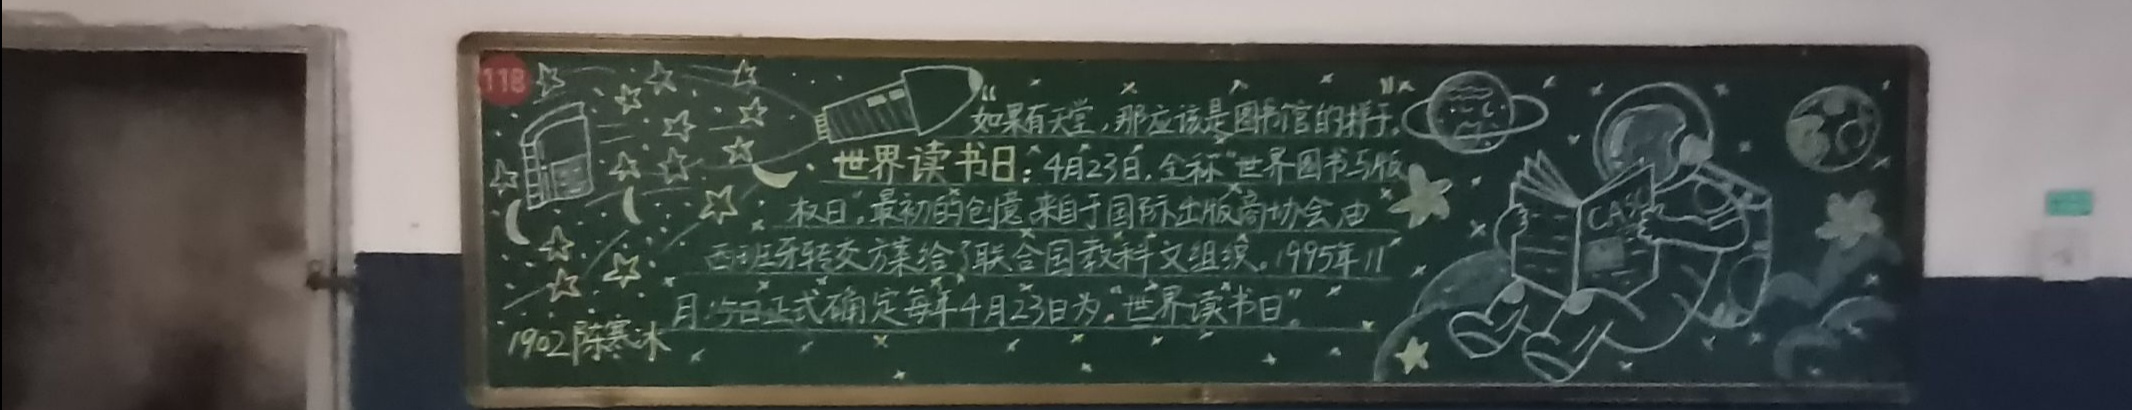 118
“如果有天堂，那应该是图书馆的样子。”
世界读书日：4月23日，全称“世界图书与版
权日”，最初的创意来自于国际出版商协会，由
西班牙转交方案给了联合国教科文组织。1995年11
月15日正式确定每年4月23日为“世界读书日”。
1902陈寒冰